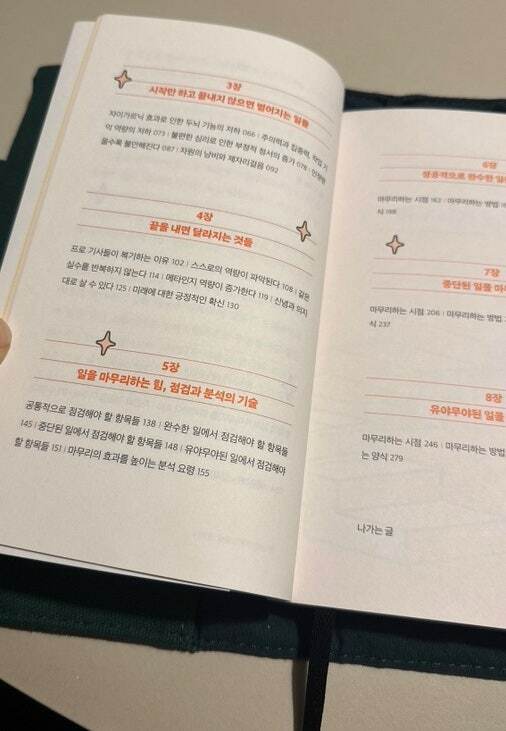 3장
시작만 하고 끝내지 않으면 벌어지는 일들
자이가르닉 효과로 인한 두뇌 기능의 저하 066 | 주의력과 집중력, 작업 기
억 역량의 저하 073 | 불편한 심리로 인한 부정적 정서의 증가 078 |
을수록 불안해진다 087 | 자원의 낭비와 제자리걸음 092
4장
끝을 내면 달라지는 것들
프로 기사들이 복기하는 이유 102 | 스스로의 역량이 파악된다 108 | 같은
실수를 반복하지 않는다 114 | 메타인지 역량이 증가한다 119 | 신념과 의지
대로 살 수 있다 125 | 미래에 대한 긍정적인 확신 130
5장
일을 마무리하는 힘, 점검과 분석의 기술
공통적으로 점검해야 할 항목들 138 | 완수한 일에서 점검해야 할 항목들
145 | 중단된 일에서 점검해야 할 항목들 148 | 유야무야된 일에서 점검해야
할 항목들 151 | 마무리의 효과를 높이는 분석 요령 155
6장
성공적으로 완수한 일
마무리하는 시점 162 | 마무리하는 방법
식 198
7장
중단된 일을 마
마무리하는 시점 206 | 마무리하는 방법
식 237
8장
유야무야된 일을
마무리하는 시점 246 | 마무리하는 방법
는 양식 279
나가는 글